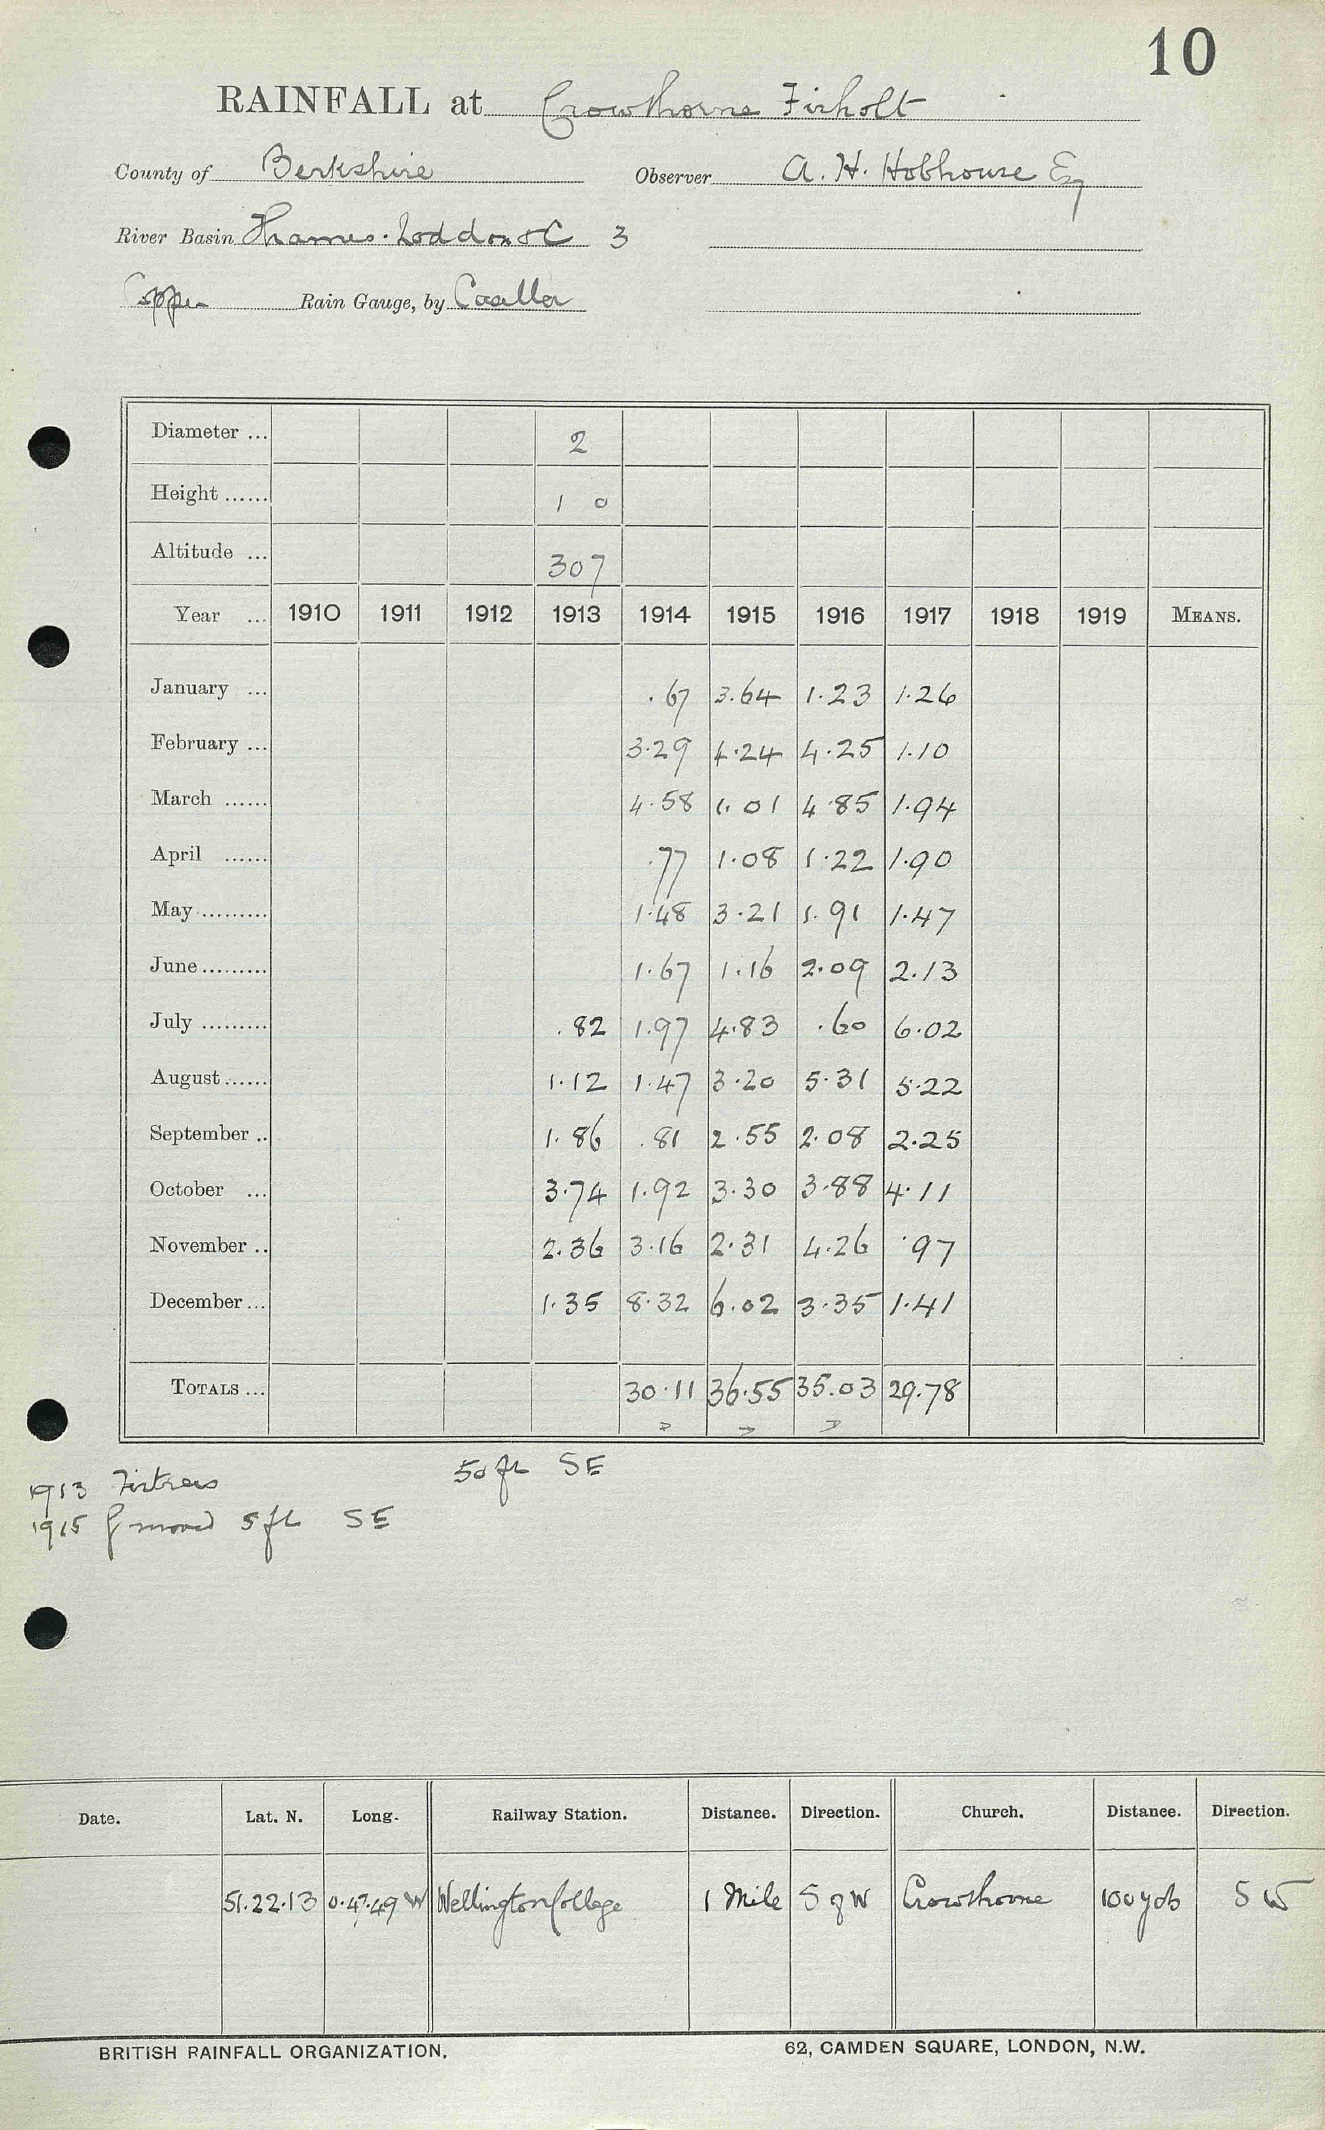 10
RAINFALL at Crowthorne Firholt
County of Berkshire Observer A. H. Hobhouse Esq
River Basin Thames. Loddon &C 3
Copper Rain Gauge, by Casella
Diameter ... 2
Height ...... 1 0
Altitude ... 307
Year ... 1910 1911 1912 1913 1914 1915 1916 1917 1918 1919 MEANS.
January ... .67 3.64 1.23 1.26
February ... 3.29 4.24 4.25 1.10
March ...... 4.58 1.01 4.85 1.94
April ...... .77 1.08 1.22 1.90
May ......... 1.48 3.21 1.91 1.47
June ......... 1.67 1.16 2.09 2.13
July ......... .82 1.97 4.83 .60 6.02
August ...... 1.12 1.47 3.20 5.31 5.22
September .. 1.86 .81 2.55 2.08 2.25
October ... 3.74 1.92 3.30 3.88 4.11
November .. 2.36 3.16 2.31 4.26 .97
December ... 1.35 8.32 6.02 3.35 1.41
TOTALS ... 30.11 36.55 35.03 29.78
1913 Firtrees 50 ft SE
1915 G moved 5 ft SE
Date. Lat. N. Long. Railway Station. Distance. Direction. Church. Distance. Direction.
51.22.13 0.47.49 W Wellington College 1 Mile S of W Crowthorne 100 yds SW
BRITISH RAINFALL ORGANIZATION. 62, CAMDEN SQUARE, LONDON, N.W.